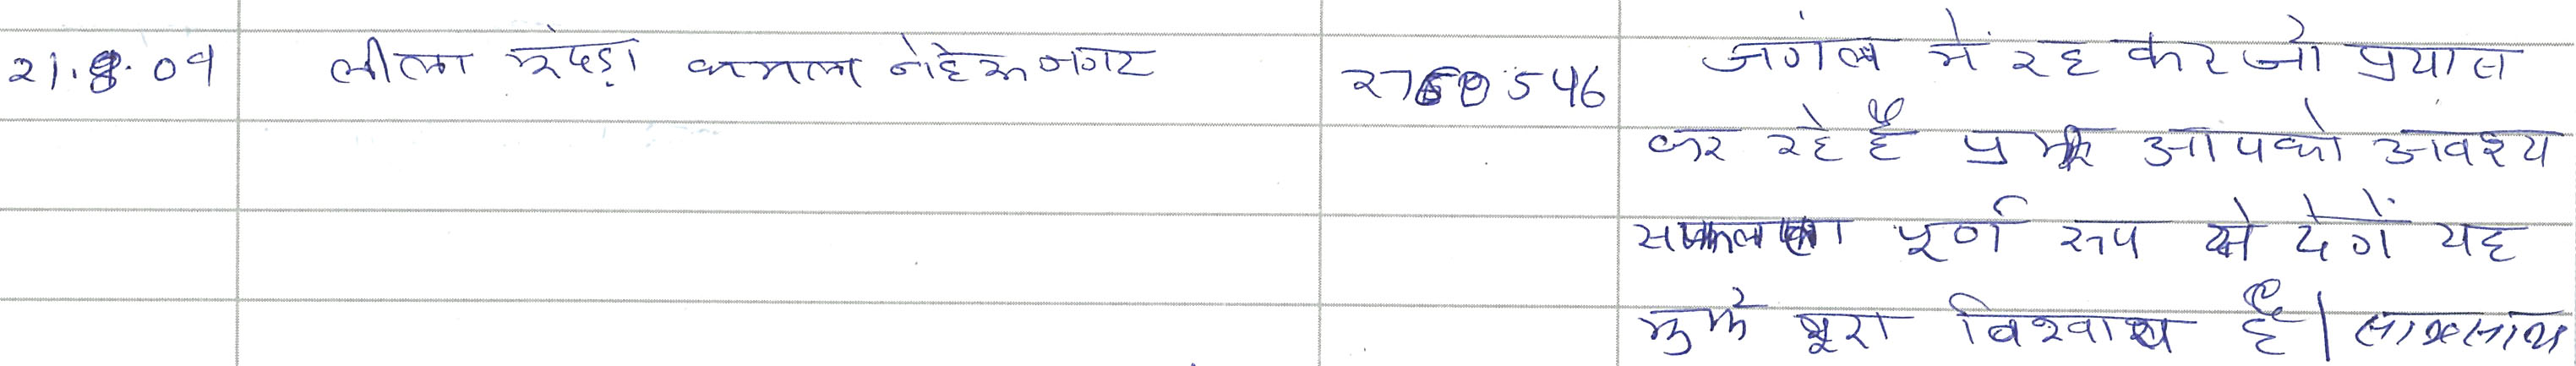 21.8.09 लीला मुंदड़ा कमला नेहरू नगर 2760546 जगंल में रह कर जो प्रयास
कर रहे हैं प्रभु आपको आवश्य
सफलता पूर्ण रूप से देगें यह
मुझे पूरा विश्वास है। साथ साथ